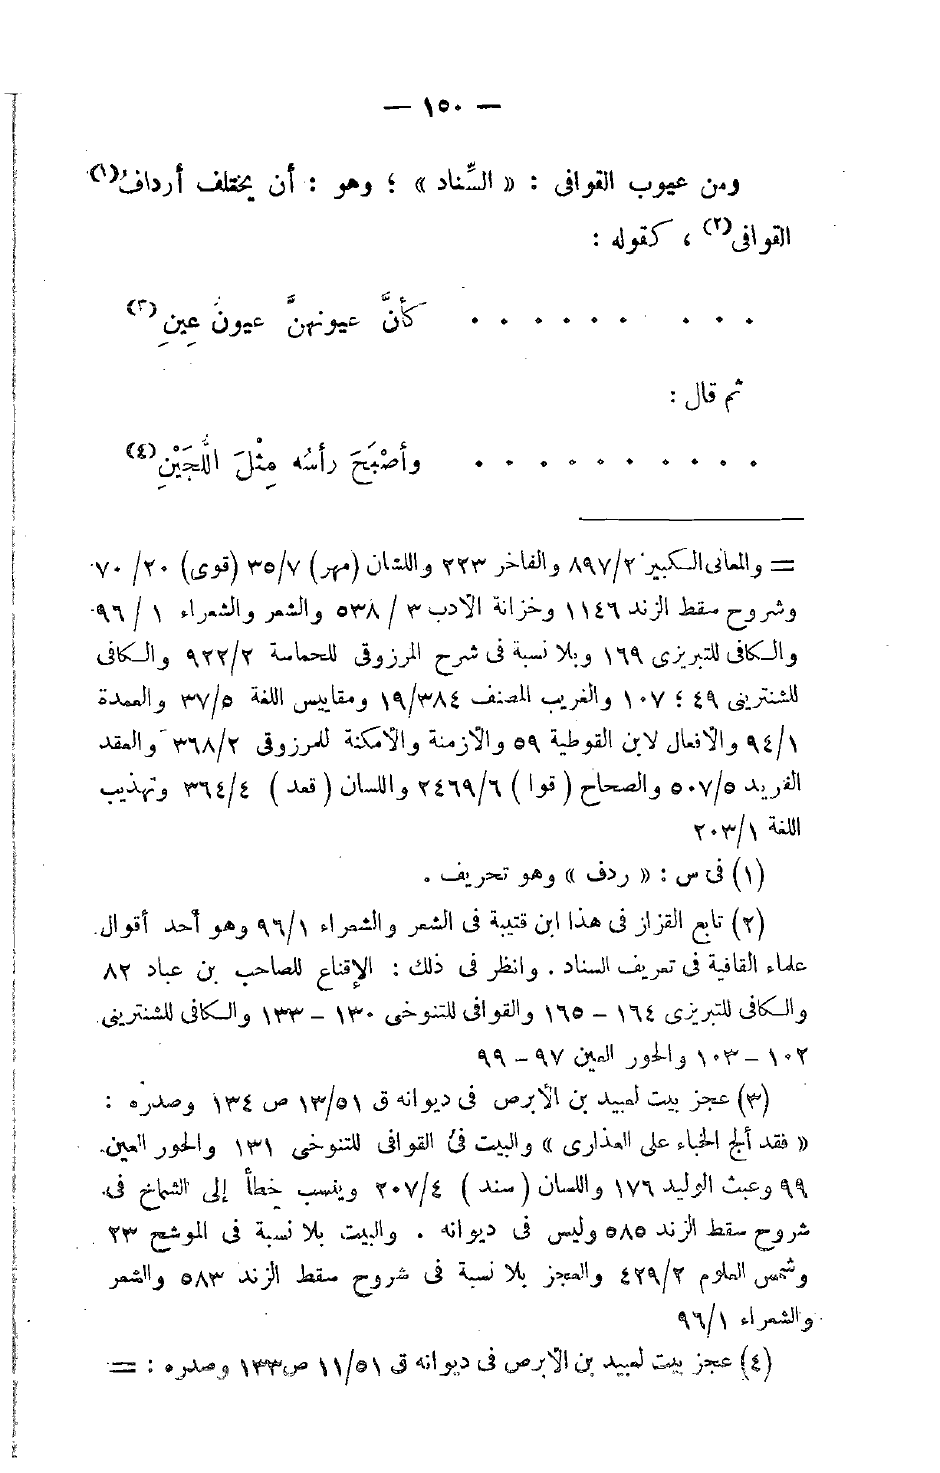 — ١٥٠ —
ومن عيوب القوافى : « السِّناد » ؛ وهو : أن يختلف أردافُ(١)
القوافى(٢) ، كقوله :
. . . . . . . . . . كأنَّ عيونهنَّ عيونُ عِينِ(٣)
ثم قال :
. . . . . . . . . . وأصْبَحَ رأسُه مِثْلَ اللُّجَيْنِ(٤)
= والمعانى الكبير ٨٩٧/٢ والفاخر ٢٢٣ واللسان (مهر) ٣٥/٧ (قوى) ٢٠/ ٧٠
وشروح سقط الزند ١١٤٦ وخزانة الأدب ٣ / ٥٣٨ والشعر والشعراء ١ / ٩٦
والكافى للتبريزى ١٦٩ وبلا نسبة فى شرح المرزوقى للحماسة ٩٢٢/٢ والكافى
للشنترينى ٤٩ ؛ ١٠٧ والغريب المصنف ١٩/٣٨٤ ومقاييس اللغة ٣٧/٥ والعمدة
٩٤/١ والأفعال لابن القوطية ٥٩ والأزمنة والأمكنة للمرزوقى ٣٦٨/٢ والعقد
الفريد ٥٠٧/٥ والصحاح ( قوا ) ٢٤٦٩/٦ واللسان ( قعد ) ٣٦٤/٤ وتهذيب
اللغة ٢٠٣/١
(١) فى س : « ردف » وهو تحريف .
(٢) تابع القزاز فى هذا ابن قتيبة فى الشعر والشعراء ٩٦/١ وهو أحد أقوال
علماء القافية فى تعريف السناد . وانظر فى ذلك : الإقناع للصاحب بن عباد ٨٢
والكافى للتبريزى ١٦٤ – ١٦٥ والقوافى للتنوخى ١٣٠ – ١٣٣ والكافى للشنترينى
١٠٢ – ١٠٣ والحور العين ٩٧ – ٩٩
(٣) عجز بيت لعبيد بن الأبرص فى ديوانه ق ١٣/٥١ ص ١٣٤ وصدره :
« فقد ألج الخباء على العذارى » والبيت فى القوافى للتنوخى ١٣١ والحور العين
٩٩ وعبث الوليد ١٧٦ واللسان ( سند ) ٢٠٧/٤ وينسب خطأ إلى الشماخ فى
شروح سقط الزند ٥٨٥ وليس فى ديوانه . والبيت بلا نسبة فى الموشح ٢٣
وشمس العلوم ٤٢٩/٢ والعجز بلا نسبة فى شروح سقط الزند ٥٨٣ والشعر
والشعراء ٩٦/١
(٤) عجز بيت لعبيد بن الأبرص فى ديوانه ق ١١/٥١ ص١٣٣ وصدره : =